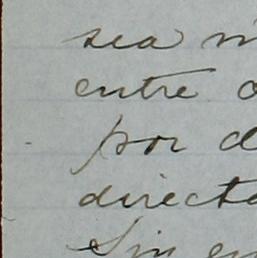 sea
entre
por d
directa
Sin en